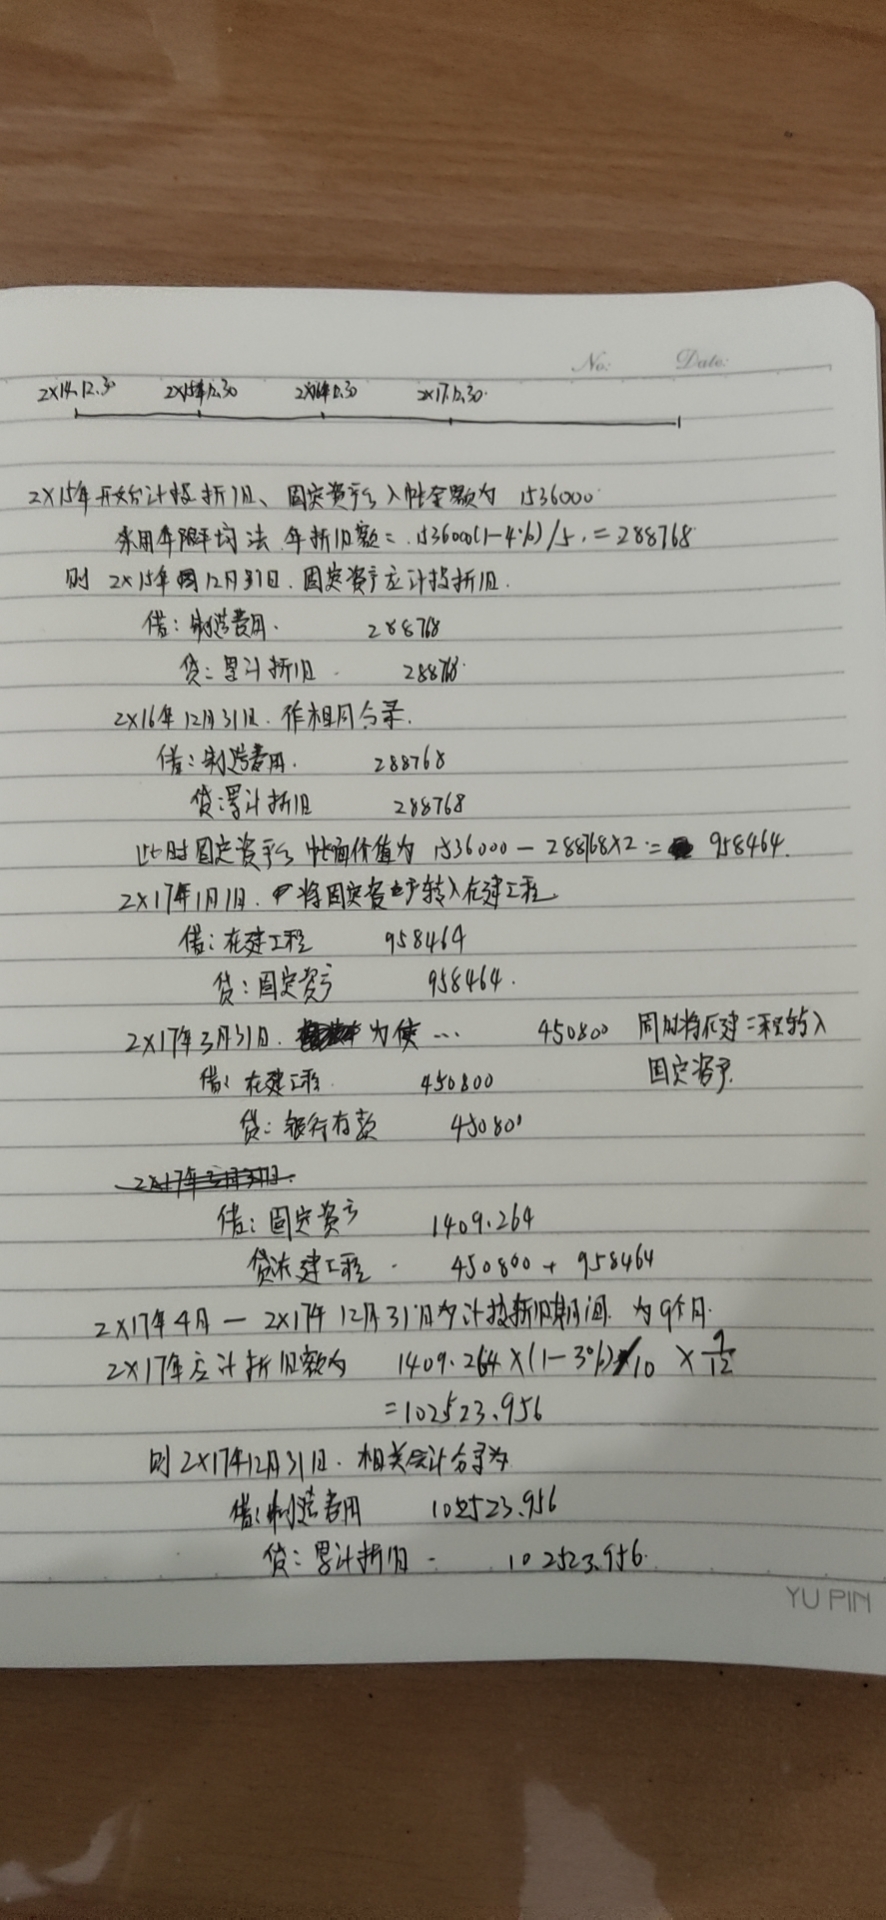 No: Date:
2×14.12.30 2×15年12.30 2×16年12.30 2×17.12.30
2×15年开始计提折旧、固定资产入帐金额为 1536000
采用年限平均法 年折旧额=1536000(1-4%)/5.=288768
则 2×15年12月31日.固定资产应计提折旧.
借:制造费用. 288768
贷:累计折旧 288768
2×16年12月31日.作相同分录.
借:制造费用. 288768
贷:累计折旧 288768
此时固定资产帐面价值为 1536000-288768×2= 958464.
2×17年1月1日. 将固定资产转入在建工程
借:在建工程 958464
贷:固定资产 958464.
2×17年3月31日. 为使… 450800 同时将在建工程转入
固定资产.
借:在建工程. 450800
贷:银行存款 450800
2×17年3月31日.
借:固定资产 1409.264
贷:在建工程. 450800+958464
2×17年4月-2×17年12月31日为计提折旧期间.为9个月.
2×17年应计折旧额为 1409.264×(1-3%)/10×9/12
=102523.956
则2×17年12月31日.相关会计分录为
借:制造费用 102523.956
贷:累计折旧- 102523.956.
YU PIN